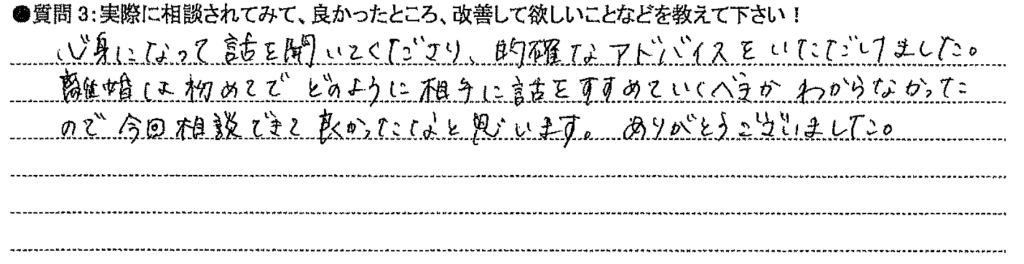 ●質問3:実際に相談されてみて、良かったところ、改善して欲しいことなどを教えて下さい！
心身になって話を聞いてくださり、的確なアドバイスをいただけました。
離婚は初めてでどのように相手に話をすすめていくべきかわからなかった
ので今回相談できて良かったなと思います。ありがとうございました。